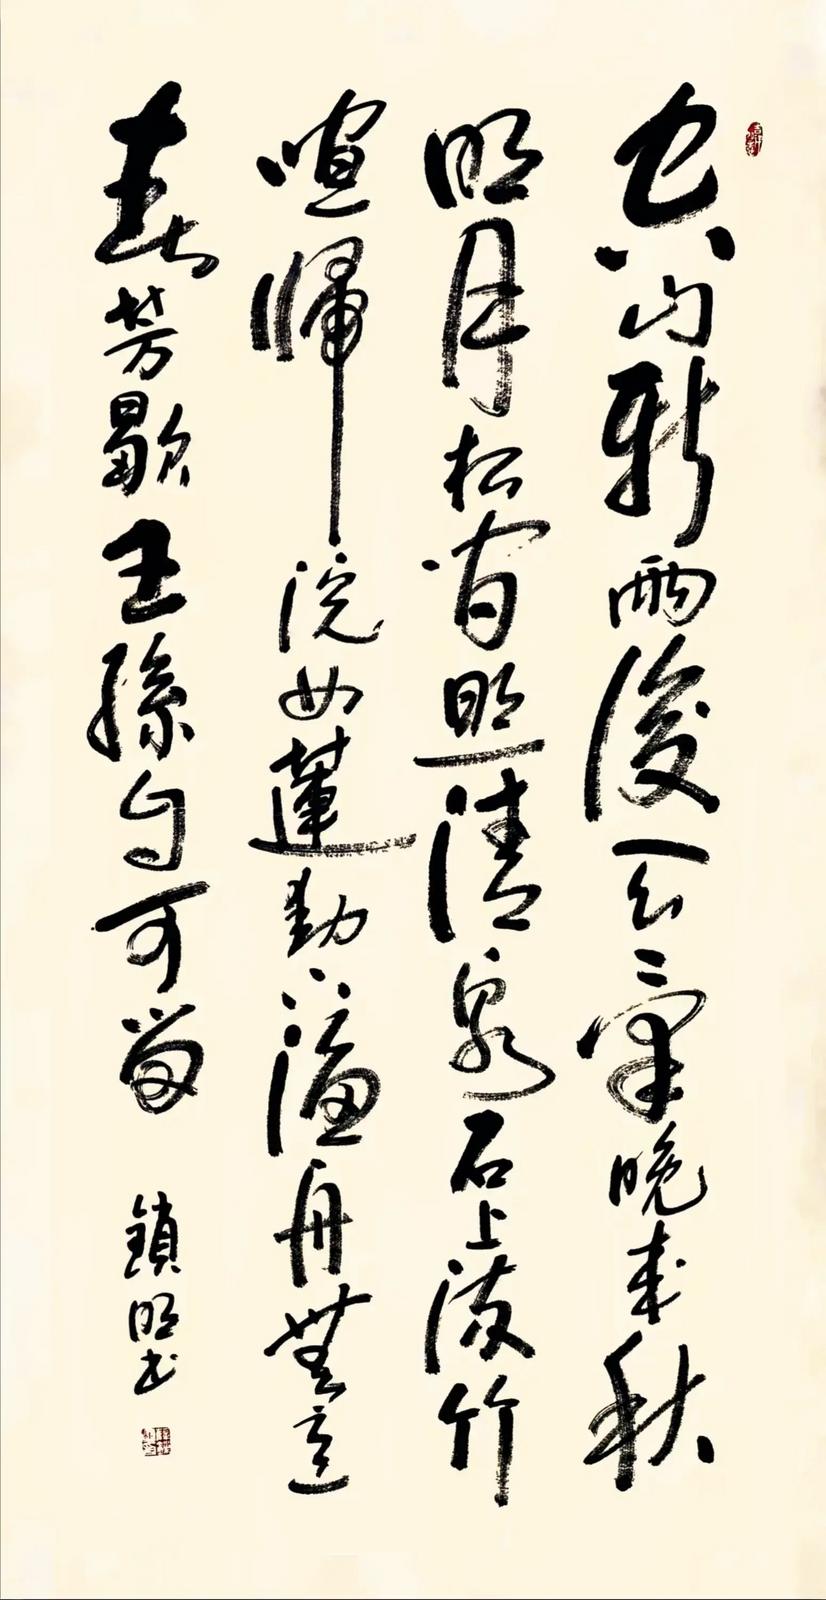 空山新雨後天氣晚来秋
明月松間照清泉石上流竹
喧歸浣女蓮動下漁舟無意
春芳歇王孫自可留
鎮明书